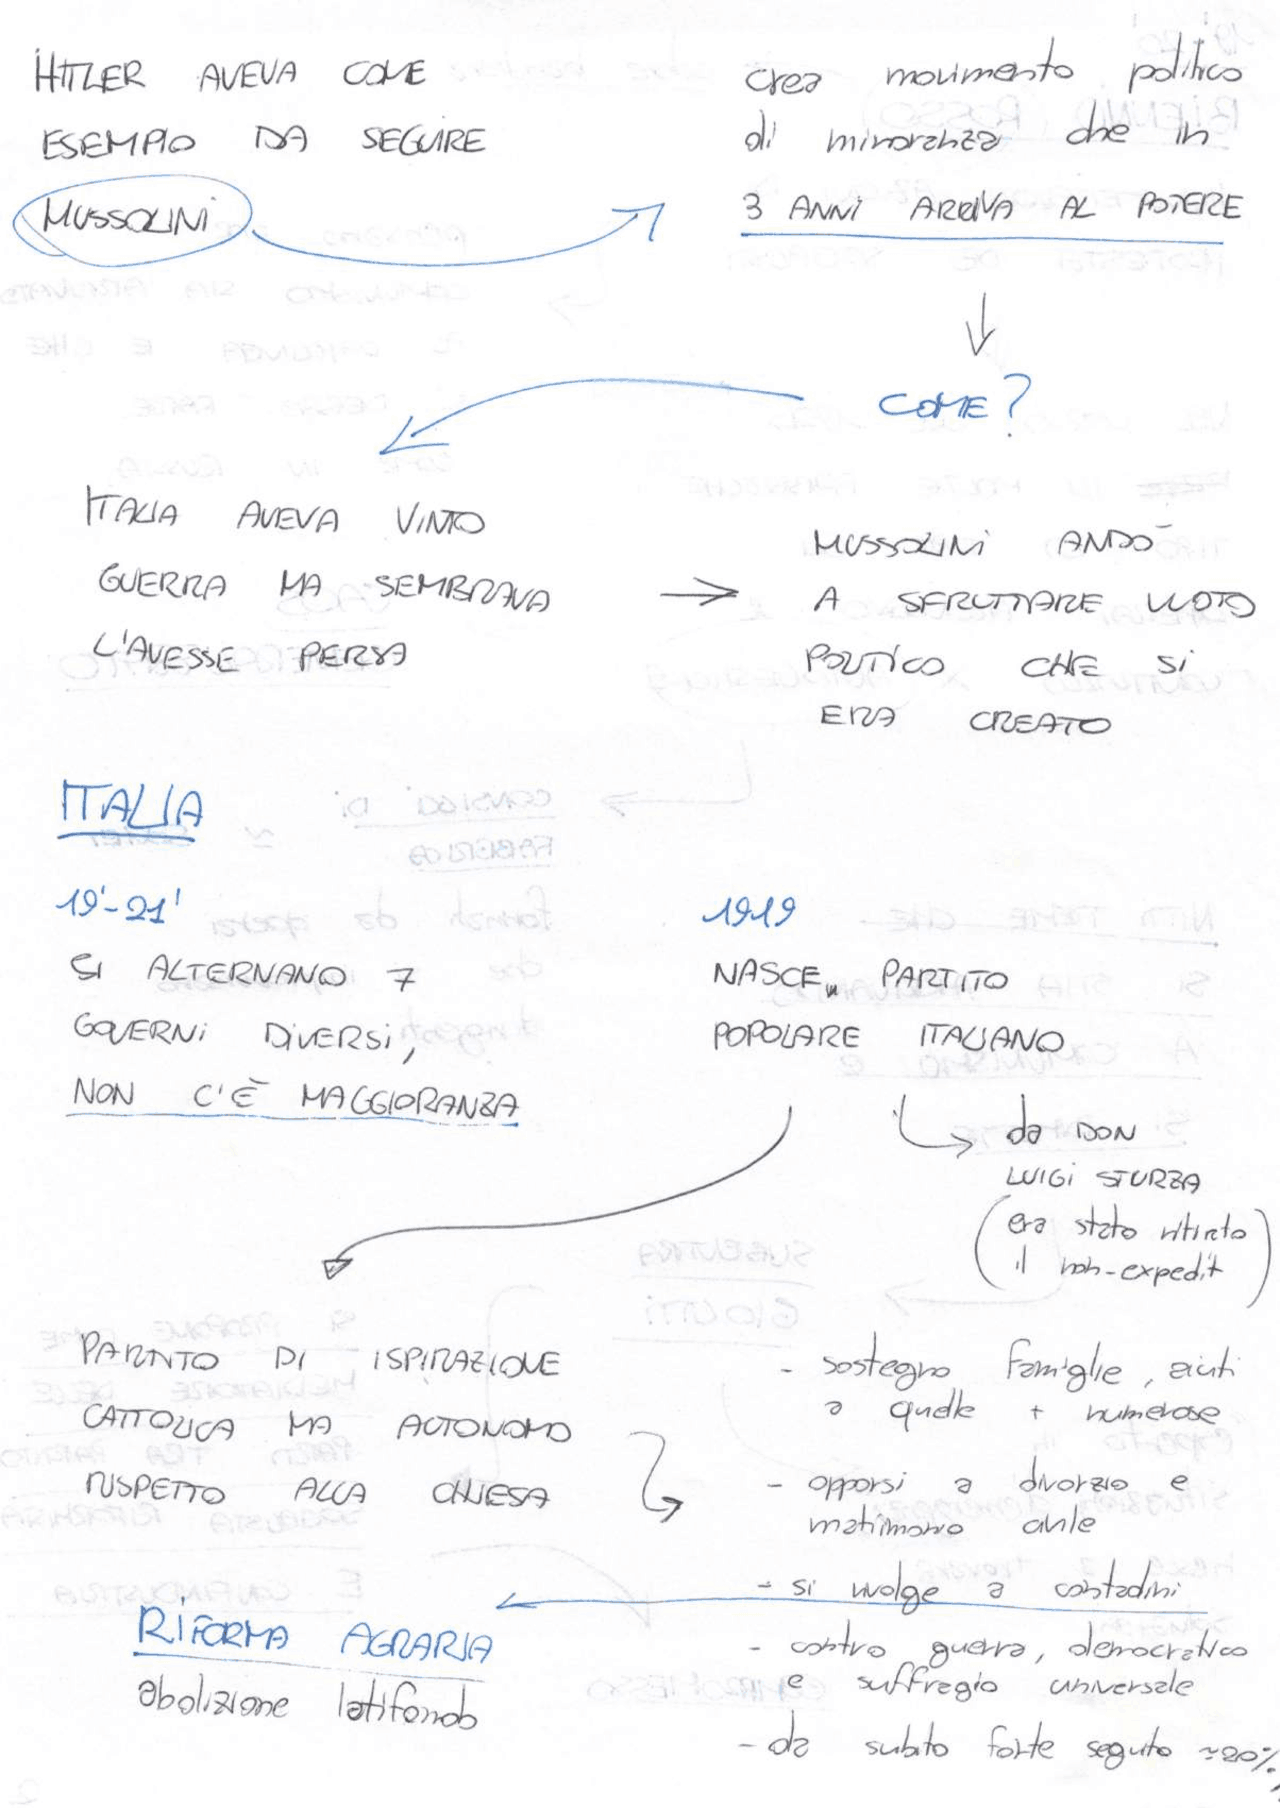 HITLER AVEVA COME
ESEMPIO DA SEGUIRE
MUSSOLINI
crea movimento politico
di minoranza che in
3 ANNI ARRIVA AL POTERE
COME?
ITALIA AVEVA VINTO
GUERRA MA SEMBRAVA
L'AVESSE PERSA
MUSSOLINI ANDÒ
A SFRUTTARE VUOTO
POLITICO CHE SI
ERA CREATO
ITALIA
19'-21'
SI ALTERNANO 7
GOVERNI DIVERSI,
NON C'È MAGGIORANZA
1919
NASCE PARTITO
POPOLARE ITALIANO
da DON
LUIGI STURZA
(era stato ritirato
il non-expedit)
PARTITO DI ISPIRAZIONE
CATTOLICA MA AUTONOMO
RISPETTO ALLA CHIESA
- sostegno famiglie, aiuti
a quelle + numerose
- opporsi a divorzio e
matrimonio civile
- si rivolge a contadini
RIFORMA AGRARIA
abolizione latifondo
- contro guerra, democratico
e suffragio universale
- da subito forte seguito ≃20%